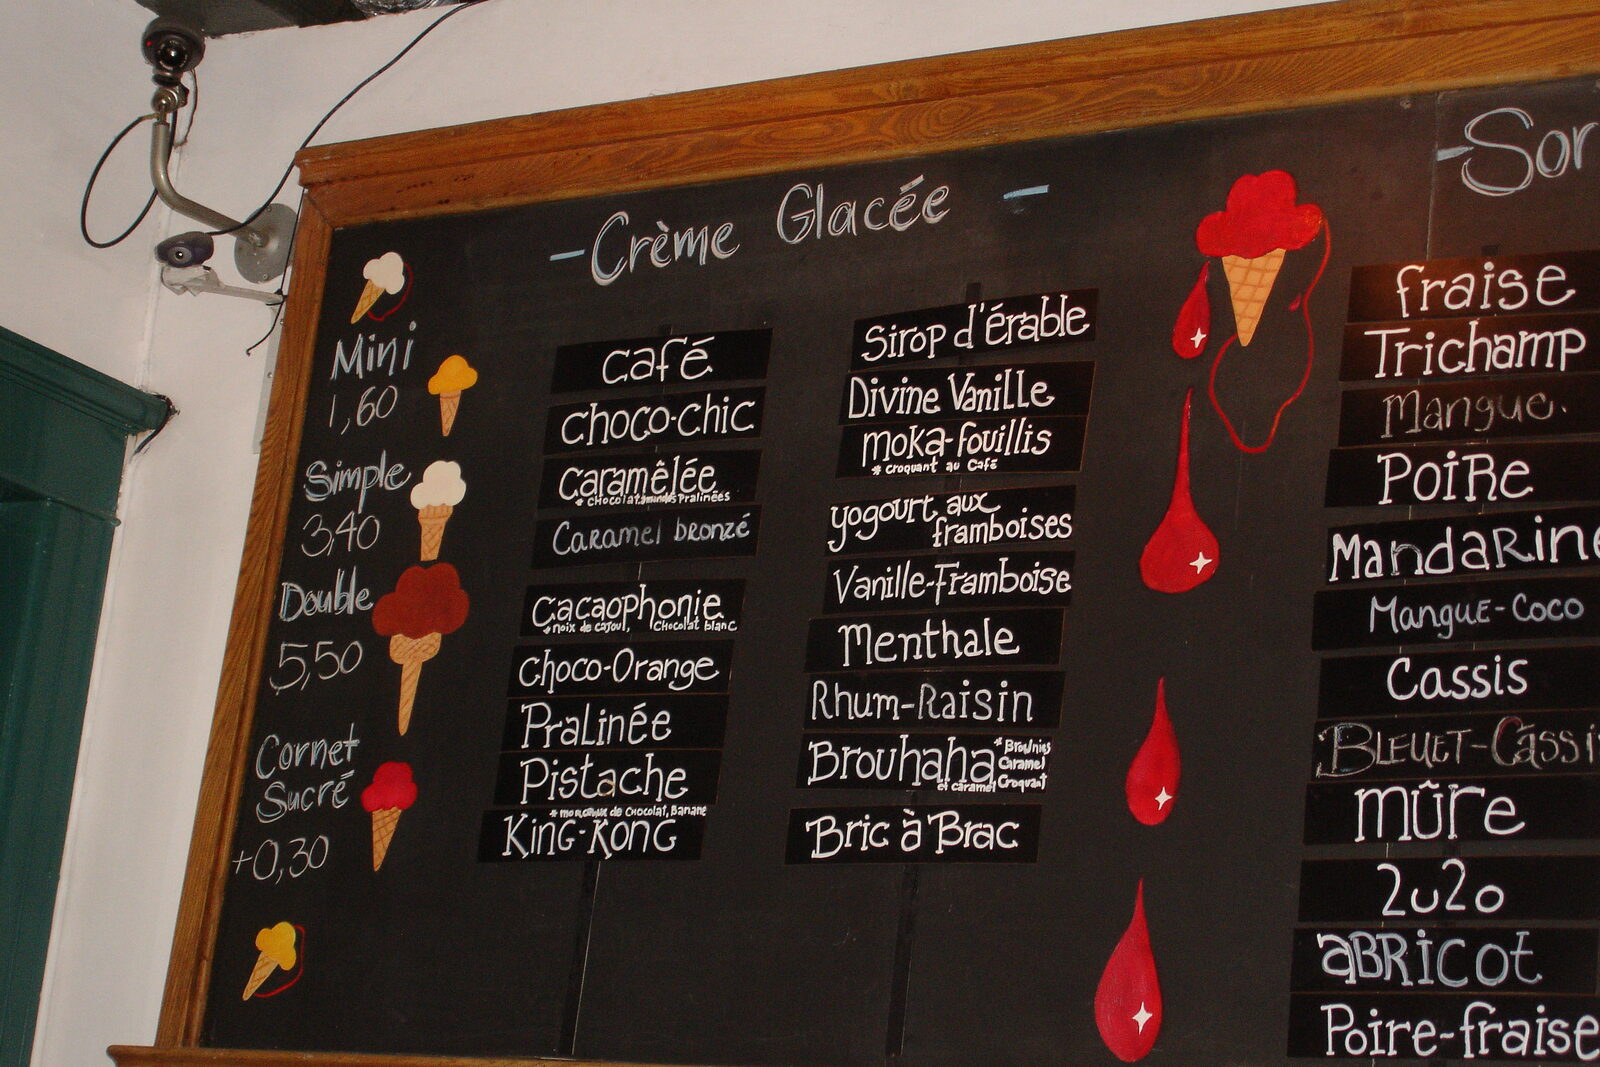 - Crème Glacée -
Mini
1,60
Simple
3,40
Double
5,50
Cornet
Sucré
+0,30
Café
Choco-chic
Caramêlée
* Chocolat, amandes Pralinées
Caramel bronzé
Cacaophonie
* noix de cajou, Chocolat blanc
Choco-Orange
Pralinée
Pistache
* morceaux de Chocolat, Banane
King-Kong
Sirop d'érable
Divine Vanille
Moka-fouillis
* Croquant au Café
yogourt aux
framboises
Vanille-Framboise
Menthale
Rhum-Raisin
Brouhaha
* Brownies
Caramel
Croquant
et caramel
Bric à Brac
- Sor
fraise
Trichamp
Mangue.
Poire
Mandarine
Mangue-Coco
Cassis
Bleuet-Cassi
mûre
2u2o
abricot
Poire-fraise